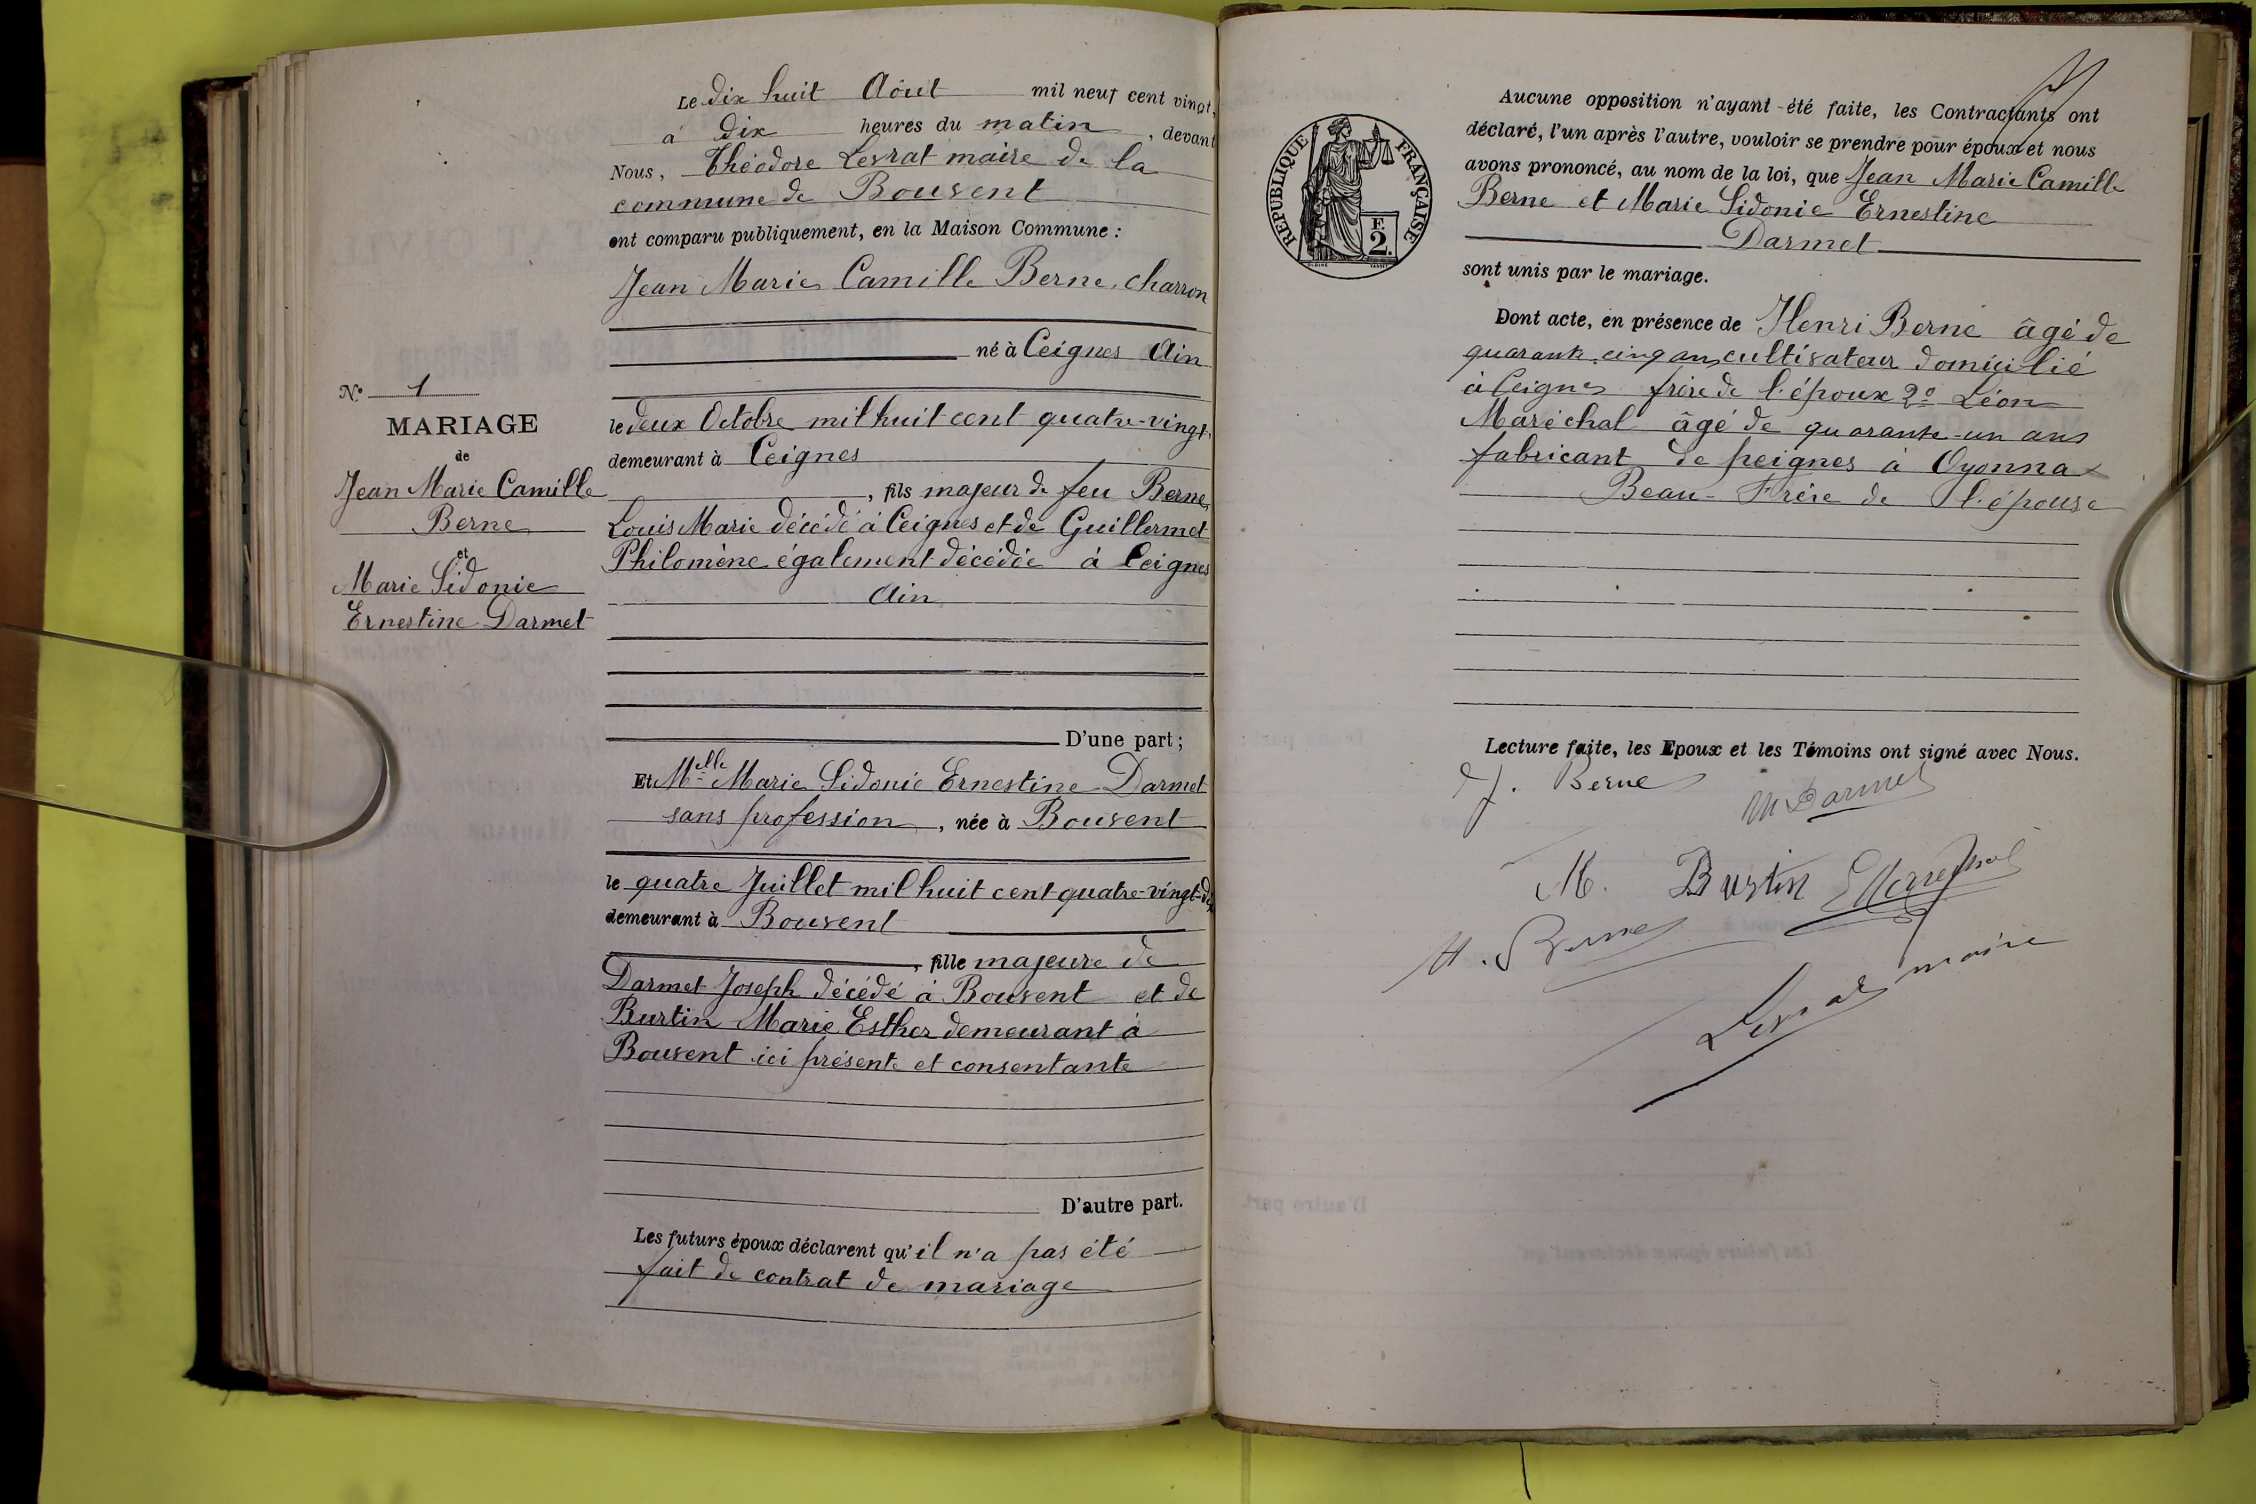 Le dix huit Août mil neuf cent vingt,
à dix heures du matin, devant
Nous, Théodore Levrat maire de la
commune de Bouvent
ont comparu publiquement, en la Maison Commune :
Jean Marie Camille Berne, charron
né à Ceignes Ain
le deux Octobre mil huit cent quatre-vingt,
demeurant à Ceignes
, fils majeur de feu Berne
Louis Marie décédé à Ceignes et de Guillermet
Philomène également décédée à Ceignes
Ain
D'une part ;
Et Melle Marie Sidonie Ernestine Darmet
sans profession, née à Bouvent
le quatre Juillet mil huit cent quatre-vingt-dix
demeurant à Bouvent
, fille majeure de
Darmet Joseph décédé à Bouvent et de
Burtin Marie Esther demeurant à
Bouvent ici présente et consentante
D'autre part.
Les futurs époux déclarent qu'il n'a pas été
fait de contrat de mariage
N° 1
MARIAGE
de
Jean Marie Camille
Berne
et
Marie Sidonie
Ernestine Darmet
RÉPUBLIQUE FRANÇAISE
F.
2.
Aucune opposition n'ayant été faite, les Contractants ont
déclaré, l'un après l'autre, vouloir se prendre pour époux et nous
avons prononcé, au nom de la loi, que Jean Marie Camille
Berne et Marie Sidonie Ernestine
Darmet
sont unis par le mariage.
Dont acte, en présence de Henri Berne âgé de
quarante cinq ans cultivateur domicilié
à Ceignes frère de l'époux 2° Léon
Maréchal âgé de quarante-un ans
fabricant de peignes à Oyonnax
Beau-Frère de l'épouse
Lecture faite, les Epoux et les Témoins ont signé avec Nous.
J. Berne
M Darmet
M. Burtin
H. Berne
Levrat maire